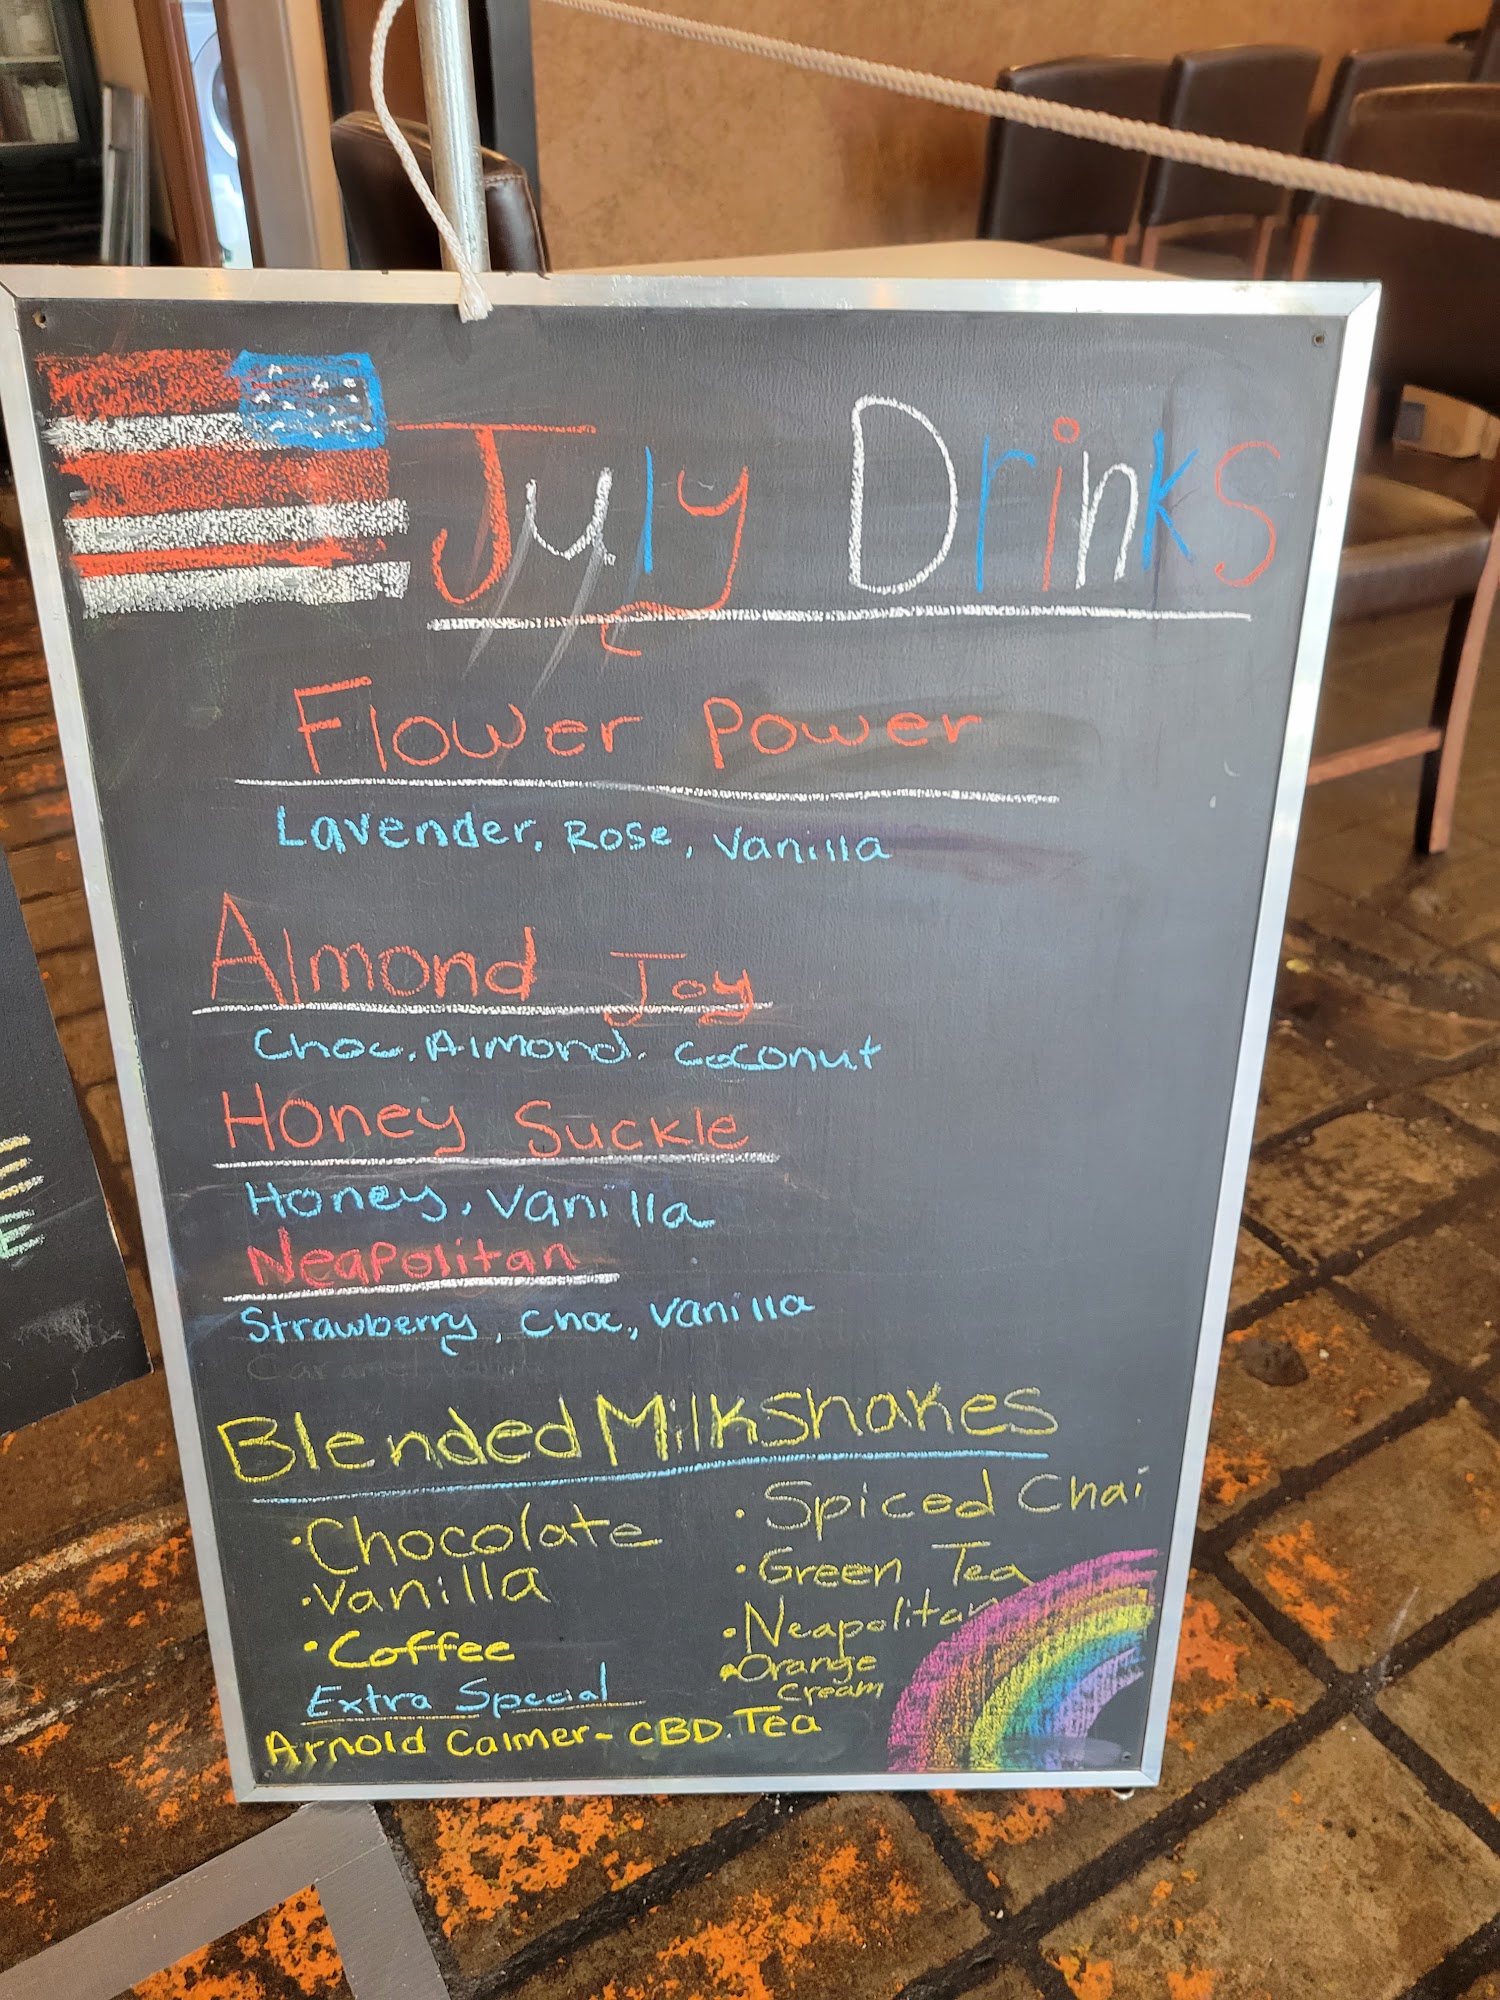 July Drinks
Flower Power
Lavender, Rose, Vanilla
Almond Joy
Choc, Almond, Coconut
Honey Suckle
Honey, Vanilla
Neapolitan
Strawberry, Choc, Vanilla
Caramel
Blended Milkshakes
• Chocolate
• Vanilla
• Coffee
• Spiced Chai
• Green Tea
• Neapolitan
• Orange
Cream
Extra Special
Arnold Calmer - CBD. Tea